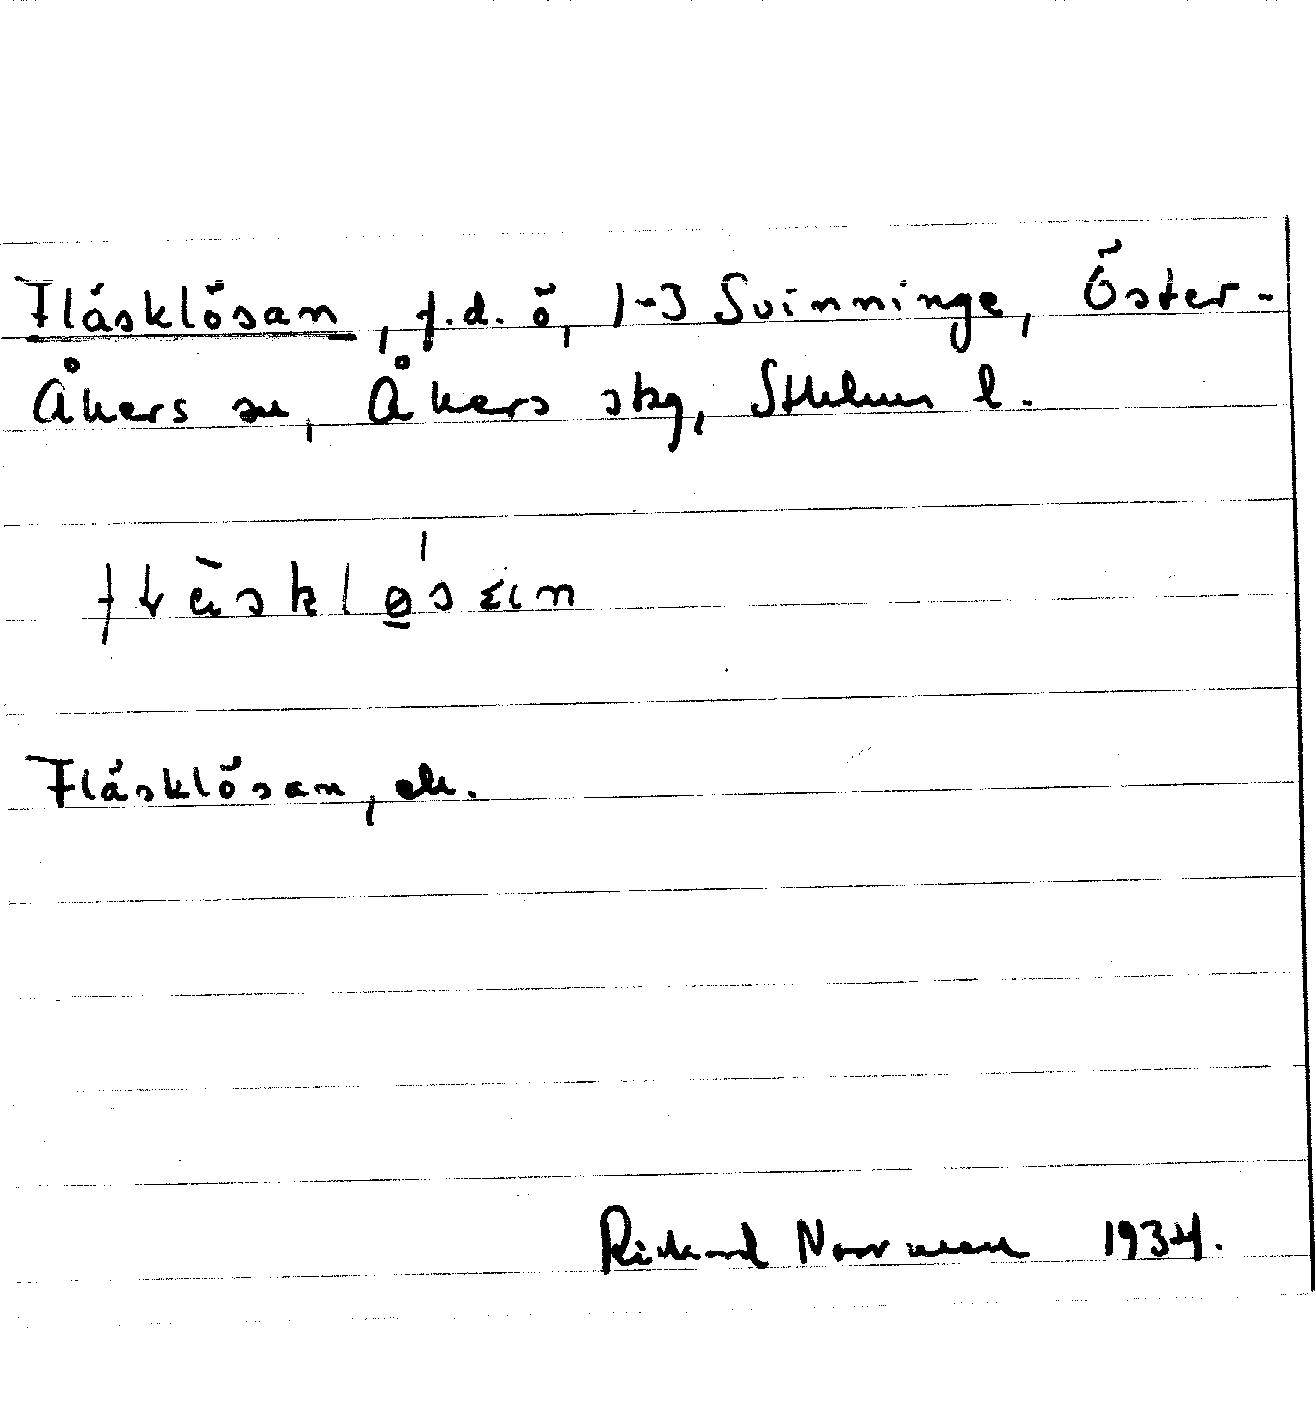 Fläsklösan, f.d. ö, 1-3 Svinninge, Öster-
Åkers sn, Åkers skg, Sthlms l.
Fläsklösan, ek.
Rickard Norrman 1934.